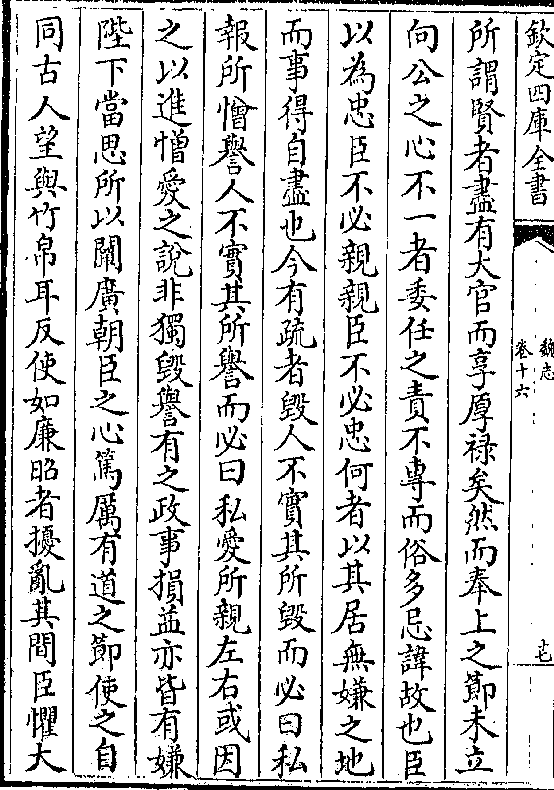 欽定四庫全書
魏志
卷十六
所謂賢者盡有大官而享厚祿矣然而奉上之節未立
向公之心不一者委任之責不專而俗多忌諱故也臣
以為忠臣不必親親臣不必忠何者以其居無嫌之地
而事得自盡也今有疏者毀人不實其所毀而必曰私
報所憎譽人不實其所譽而必曰私愛所親左右或因
之以進憎愛之說非獨毀譽有之政事損益亦皆有嫌
陛下當思所以闡廣朝臣之心篤厲有道之節使之自
同古人望與竹帛耳反使如廉昭者擾亂其間臣懼大